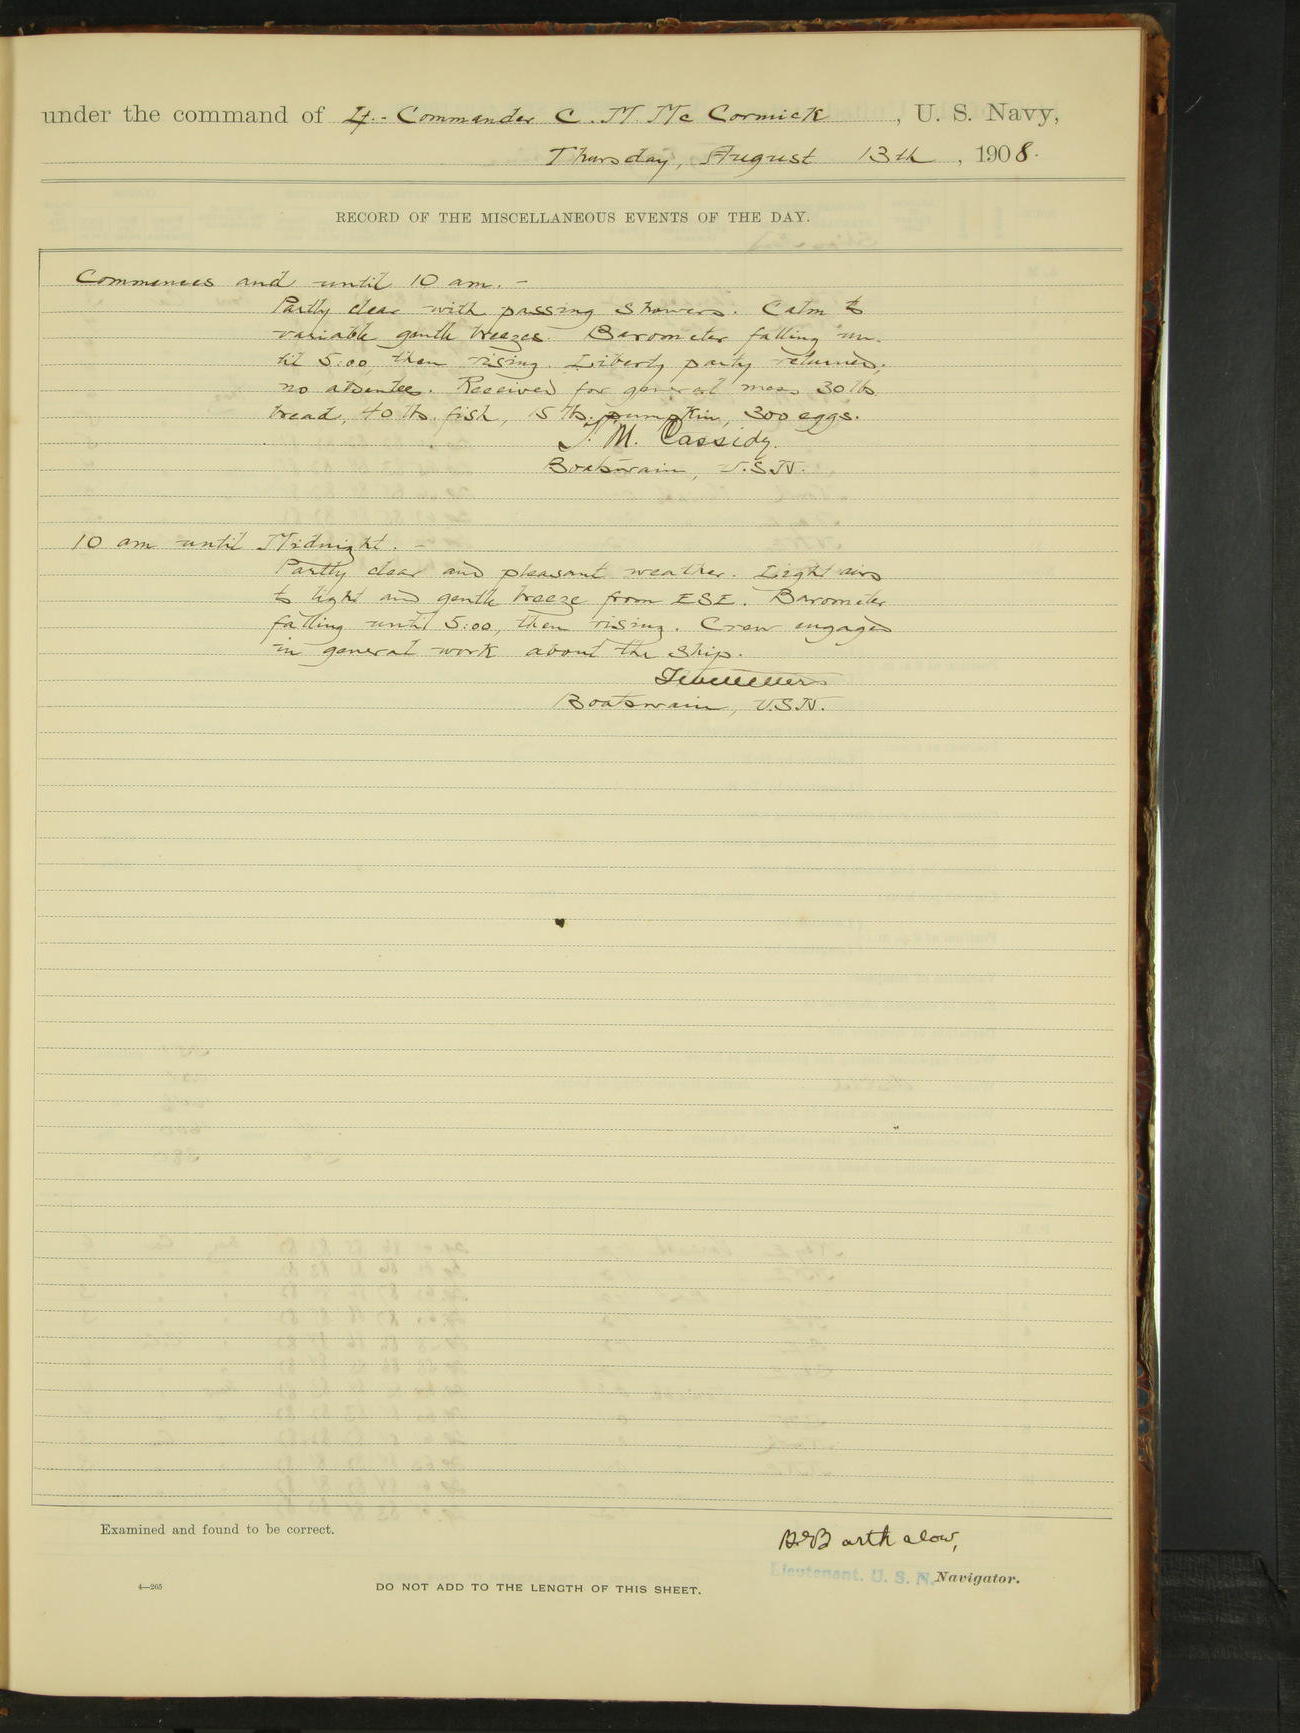 under the command of Lt.-Commander C. M. Mc Cormick, U. S. Navy,
Thursday, August 13th, 1908.
RECORD OF THE MISCELLANEOUS EVENTS OF THE DAY.
Commences and until 10 am. -
Partly clear with passing showers. Calm to
variable gentle breezes. Barometer falling un-
til 5:00, then rising. Liberty party returned;
no absentees. Received for general mess 30 lbs
bread, 40 lbs. fish, 15 lbs. pumpkin, 300 eggs.
J. M. Cassidy.
Boatswain, U.S.N.
10 am until Midnight. -
Partly clear and pleasant weather. Light airs
to light and gentle breeze from ESE. Barometer
falling until 5:00, then rising. Crew engaged
in general work about the ship.
Boatswain, U.S.N.
Examined and found to be correct.
Barthalow,
Lieutenant. U. S. N. Navigator.
4—265
DO NOT ADD TO THE LENGTH OF THIS SHEET.